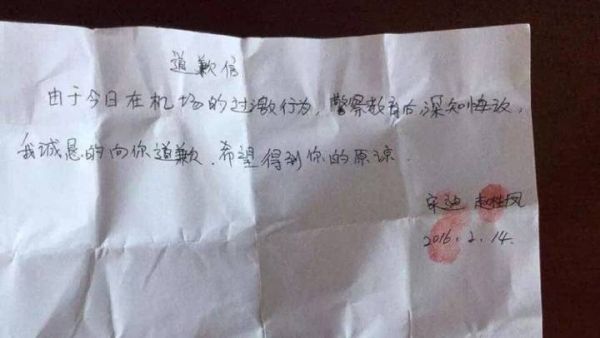 道歉信
由于今日在机场的过激行为，警察教育后深知悔改，
我诚恳的向你道歉．希望得到你的原谅．
宋迪 赵性凤
2016．2．14．